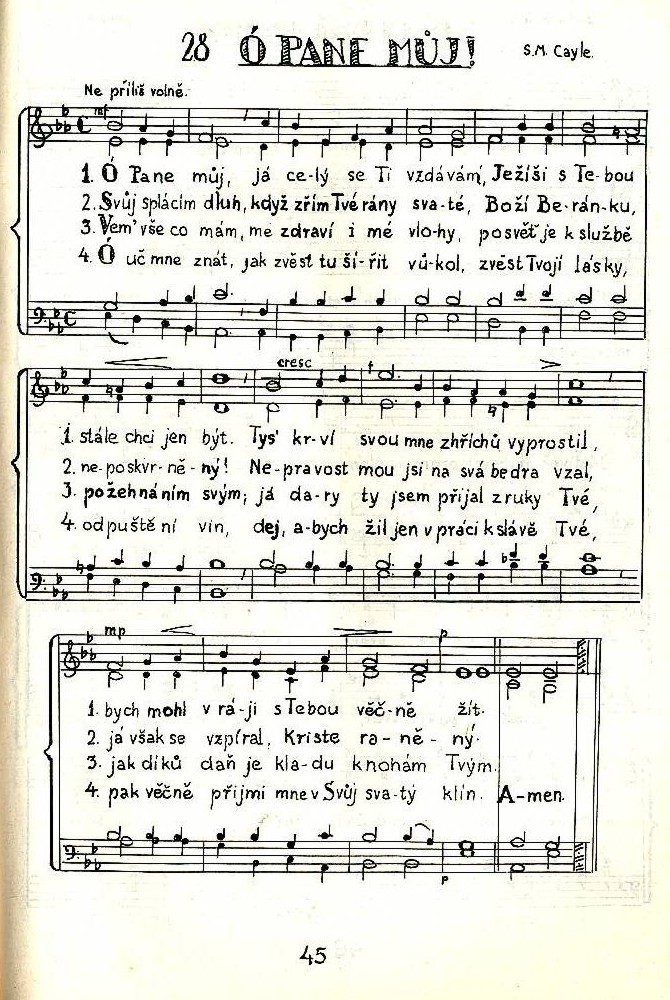 28 Ó PANE MŮJ! S.M. Cayle.
Ne příliš volně.
mf
1. Ó Pane můj, já ce-lý se Ti vzdávám, Ježíši s Te-bou
2. Svůj splácím dluh, když zřím Tvé rány sva-té, Boží Be-rán-ku,
3. Vem' vše co mám, mé zdraví i mé vlo-hy, posvěť je k službě
4. Ó uč mne znát, jak zvěst tu ší-řit vů-kol, zvěst Tvojí lásky,
cresc f
1. stále chci jen být. Tys' kr-ví svou mne zhříchů vyprostil,
2. ne-po skvr-ně-ný! Ne-pra vost mou jsi na svá bedra vzal,
3. požehnáním svým; já da-ry ty jsem přijal z ruky Tvé,
4. odpuště ní vin, dej, a-bych žil jen v práci k slávě Tvé,
mp p
1. bych mohl v rá-ji s Tebou věč-ně žít.
2. já však se vzpíral, Kriste ra-ně-ný.
3. jak díků daň je kla-du k nohám Tvým.
4. pak věčně přijmi mne v Svůj sva-tý klín. A-men.
p
45